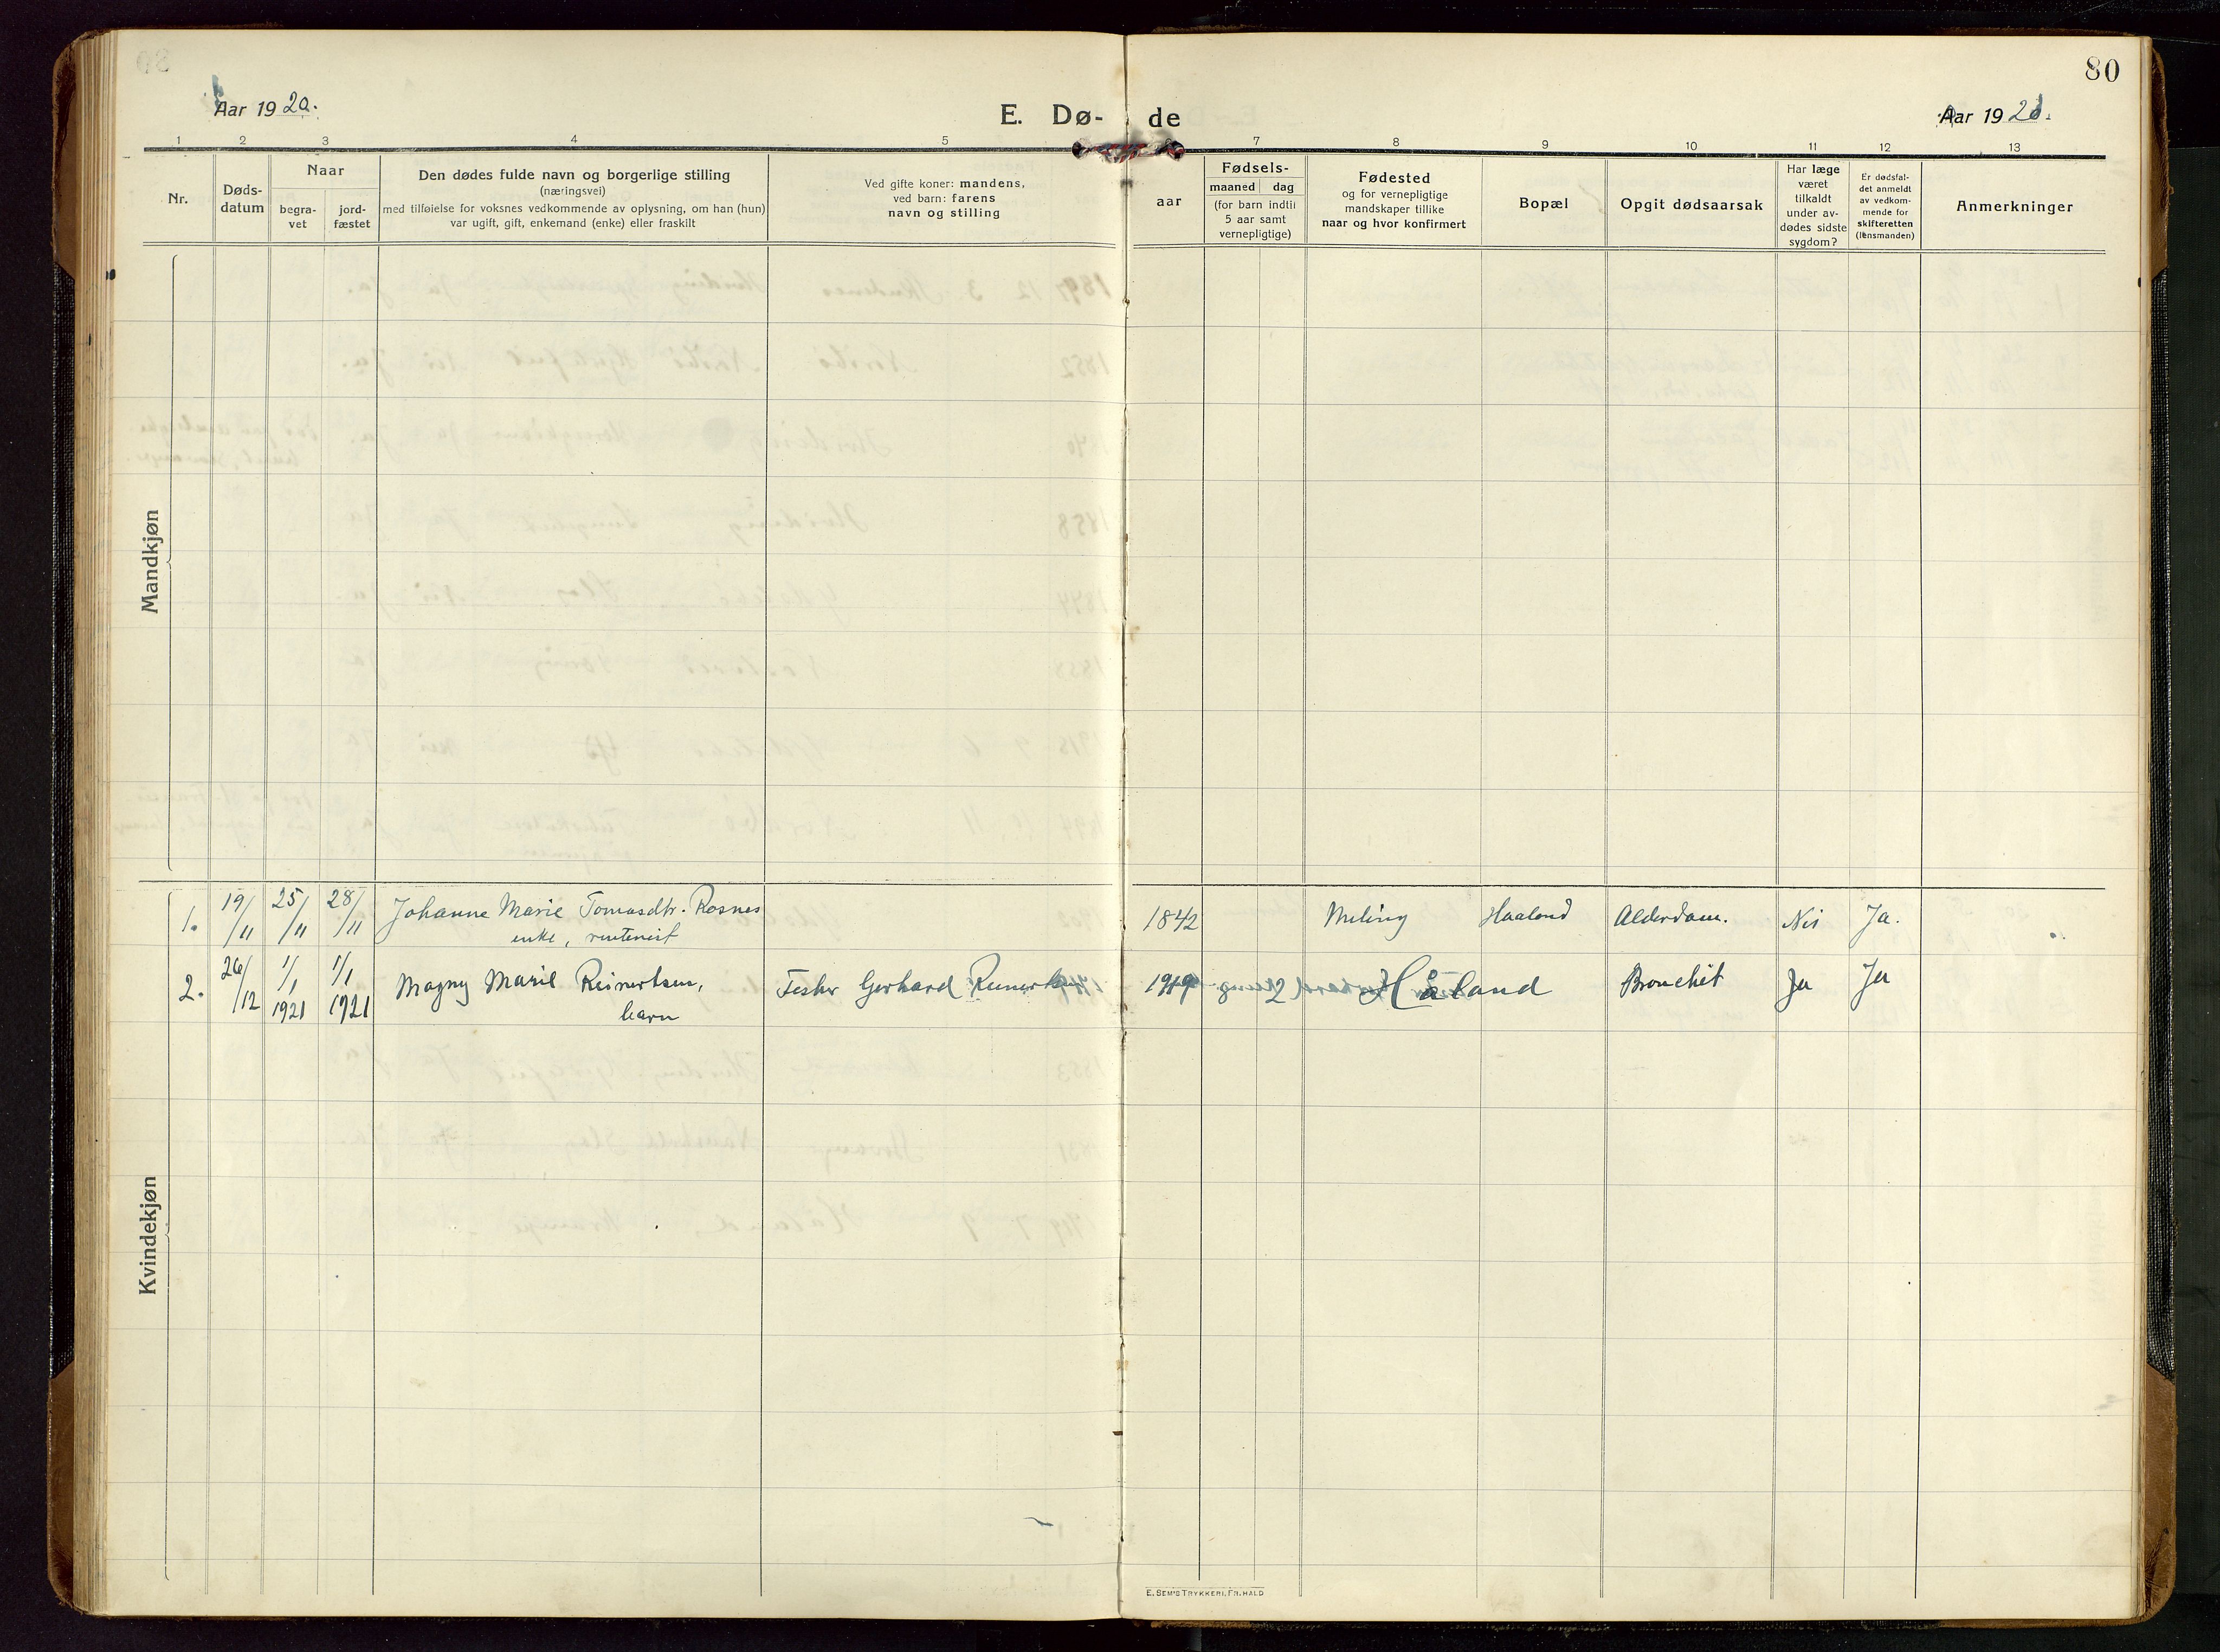 80
Aar 1920.
E. Dø- de
Aar 1920.
1 2 3 4 5 6 7 8 9 10 11 12 13
Nr.
Døds-
datum
Naar
begra-
vet
jord-
fæstet
Den dødes fulde navn og borgerlige stilling
(næringsvei)
med tilføielse for voksnes vedkommende av oplysning, om han (hun)
var ugift, gift, enkemand (enke) eller fraskilt
Ved gifte koner: mandens,
ved barn: farens
navn og stilling
aar
Fødsels-
maaned dag
(for barn indtil
5 aar samt
vernepligtige)
Fødested
og for vernepligtige
mandskaper tillike
naar og hvor konfirmert
Bopæl
Opgit dødsaarsak
Har læge
været
tilkaldt
under av-
dødes sidste
sygdom?
Er dødsfal-
det anmeldt
av vedkom-
mende for
skifteretten
(lensmanden)
Anmerkninger
Mandkjøn
Kvindekjøn
1. 19/11 25/11 28/11 Johanne Marie Tomasdtr. Rosnes 1842 Meling Haaland Alderdom. Nei Ja.
enke, rentenist
2. 26/12 1/1 1921 1/1 1921 Magny Marie Reinertsen, Fisker Gerhard Reinertsen 1919 2 Håland Bronchit Ja Ja
barn
E. SEM'S TRYKKERI, FR.HALD